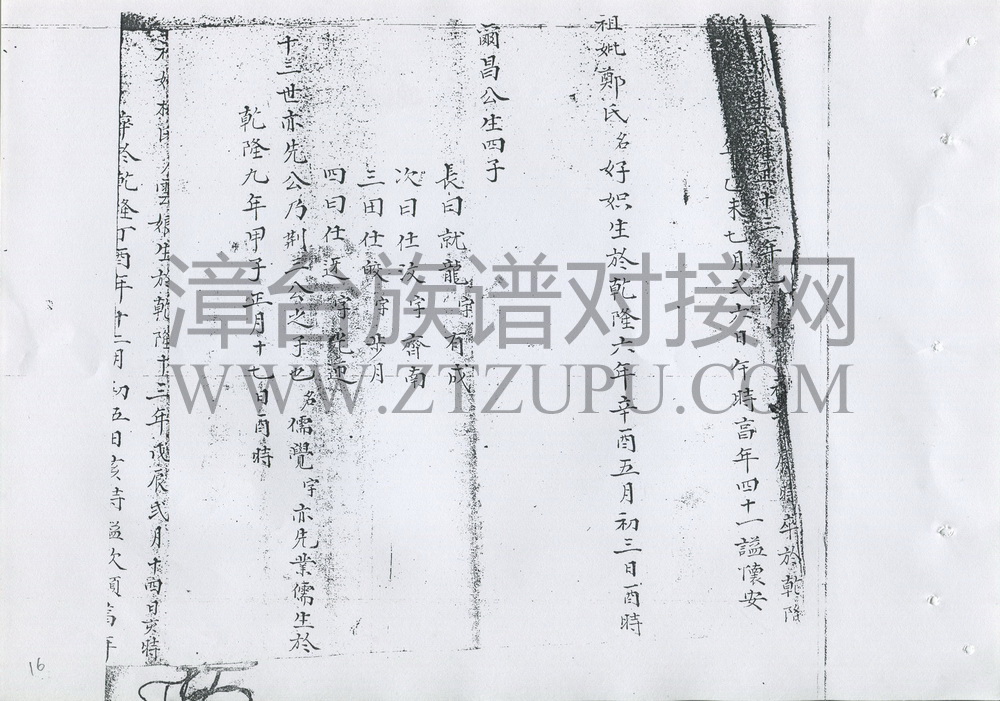 生於雍正十三年乙卯 時卒於乾隆
年己未七月弍六日午時富年四十一謚懷安
祖妣鄭氏名好娘生於乾隆六年辛酉五月初三日酉時
爾昌公生四子
長曰就龍字有成
次曰仕汶字齊南
三曰仕敏字步月
四曰仕 字光迎
十三世亦先公乃荆 公之子也名儒覺字亦先業儒生於
乾隆九年甲子正月十七日酉時
雲娘生於乾隆十三年戊辰弍月十四日亥時
卒於乾隆丁酉年十二月初五日亥時謚次順富年
漳台族谱对接网
WWW.ZTZUPU.COM
16